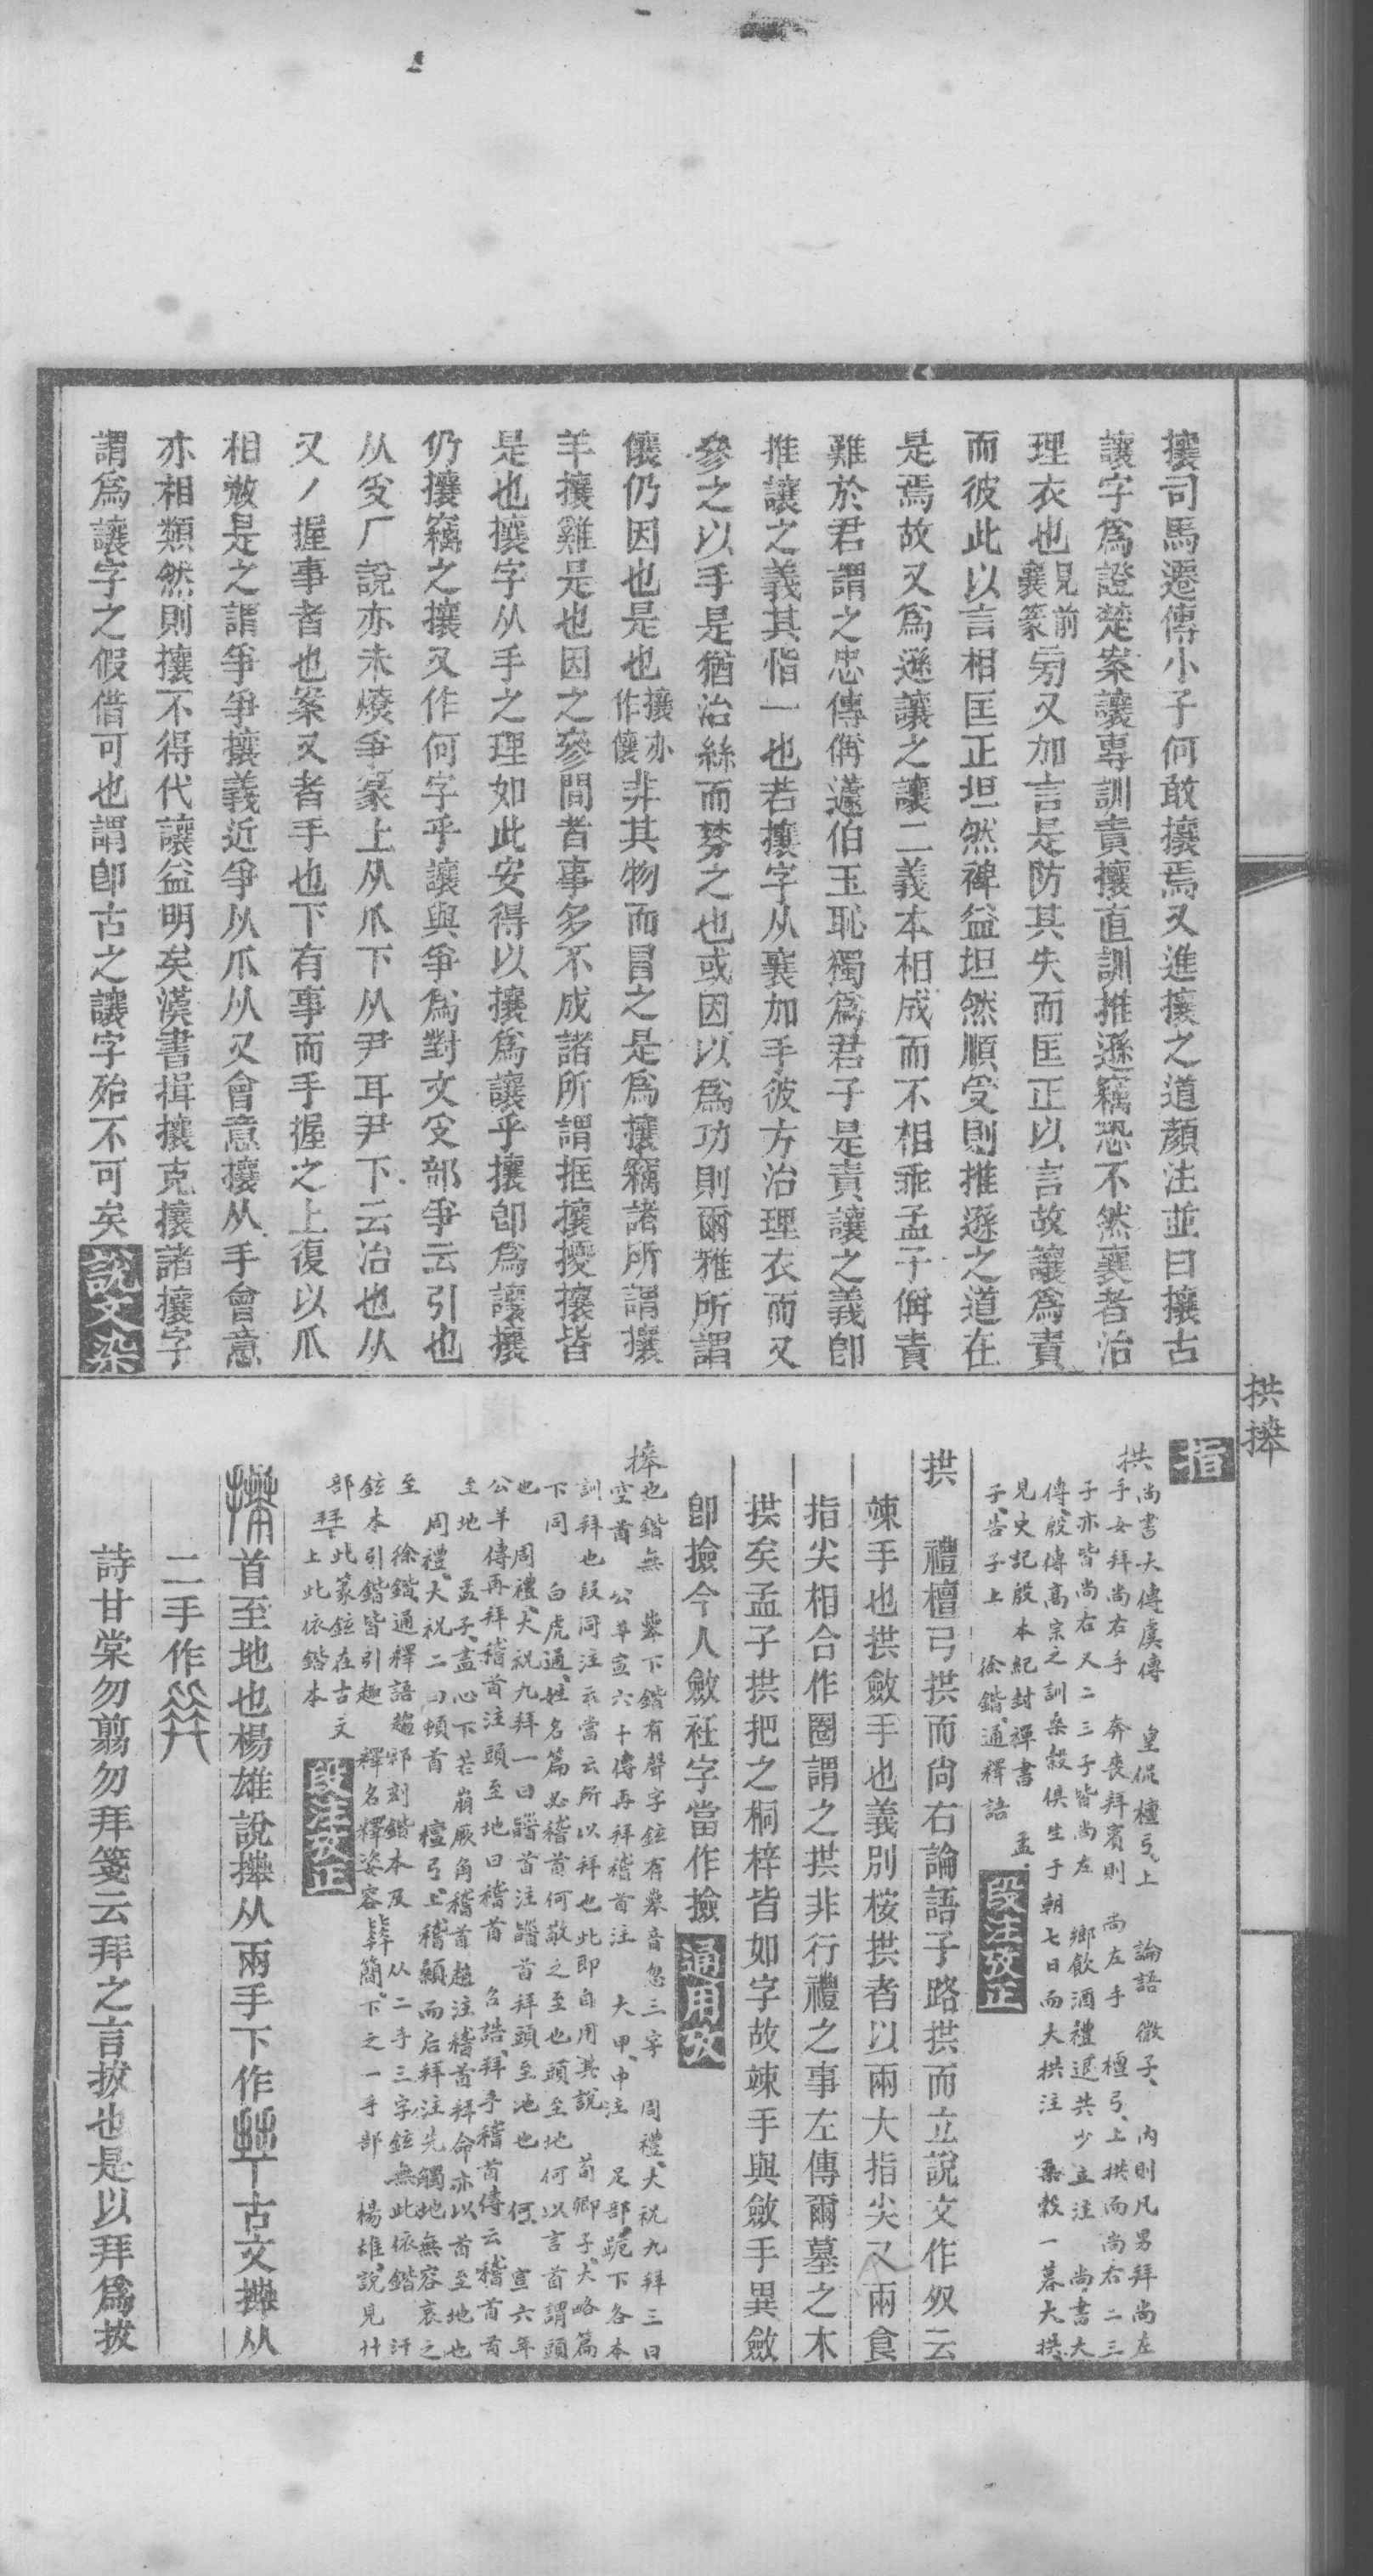 攘司馬遷傳小子何敢攘焉又進攘之道顏注並曰攘古
讓字爲證楚案讓專訓責攘直訓推遜竊恐不然襄者治
理衣也見前襄篆旁又加言是防其失而匡正以言故讓爲責
而彼此以言相匡正坦然裨益坦然順受則推遜之道在
是焉故又爲遜讓之讓二義本相成而不相乖孟子偁責
難於君謂之忠傳偁蘧伯玉恥獨爲君子是責讓之義卽
推讓之義其恉一也若攘字从襄加手彼方治理衣而又
參之以手是猶治絲而棼之也或因以爲功則爾雅所謂
儴仍因也是也攘亦作儴非其物而冒之是爲攘竊諸所謂攘
羊攘雞是也因之參間者事多不成諸所謂抂攘擾攘皆
是也攘字从手之理如此安得以攘爲讓乎攘卽爲讓攘
仍攘竊之攘又作何字乎讓與爭爲對文𠬪部爭云引也
从𠬪厂說亦未憭爭篆上从爪下从尹耳尹下云治也从
又丿握事者也案又者手也下有事而手握之上復以爪
相敵是之謂爭爭攘義近爭从爪从又會意攘从手會意
亦相類然則攘不得代讓益明矣漢書揖攘克攘諸攘字
謂爲讓字之假借可也謂卽古之讓字殆不可矣說文染
指
拱尚書大傳虞傳　皇侃檀弓上　論語微子　內則凡男拜尚左
手女拜尚右手　奔喪拜賓則尚左手　檀弓上拱而尚右二三
子亦皆尚右又二三子皆尚左　鄉飲酒禮退共少立注　尚書大
傳殷傳高宗之訓桑穀俱生于朝七日而大拱注　桑穀一暮大拱
見史記殷本紀封禪書　孟
子告子上　徐鍇通釋語
段注攷正
拱　禮檀弓拱而尚右論語子路拱而立說文作収云
竦手也拱斂手也義別桉拱者以兩大指尖又兩食
指尖相合作圈謂之拱非行禮之事左傳爾墓之木
拱矣孟子拱把之桐梓皆如字故竦手與斂手異斂
卽撿今人斂衽字當作撿通用攷
下同　白虎通姓名篇必稽首何敬之至也頭至地何以言首謂頭
也　周禮大祝九拜一曰𩒨首注𩒨首拜頭至地也　何　宣六年
公羊傳再拜稽首注頭至地曰稽首　召誥拜手稽首傳云稽首首
至地　孟子盡心下若崩厥角稽首趙注稽首拜命亦以首至地也
周禮大祝二曰頓首　檀弓上稽顙而后拜注先觸地無容哀之
部　此篆鉉在古文
拜上此依鍇本
段注攷正
首至地也楊雄說𢫶从兩手下作丅古文𢫶从
二手作
詩甘棠勿翦勿拜箋云拜之言拔也是以拜爲拔
拱𢫶